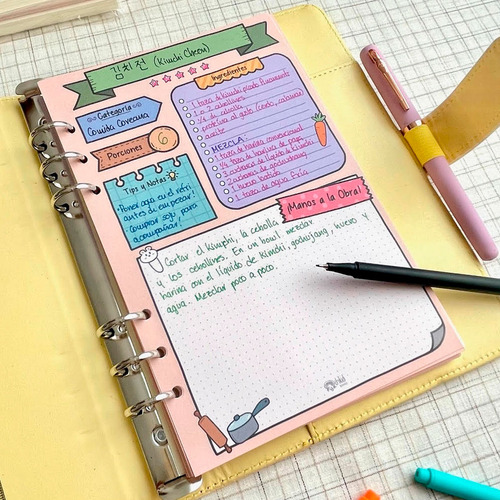 김치전 (Kimchi Cheon)
Categoría
Comida Coreana
Porciones
6
Tips y Notas
Poner agua en el refri
antes de empezar!
Comprar soju para
acompañar!
Ingredientes
1 taza de kimchi picado finamente
1 o 2 cebollines
1/4 de cebolla
proteína al gusto (cerdo, calamar)
aceite
MEZCLA:
1 taza de harina convencional
1/2 taza de harina de papa
3 cucharas de líquido de kimchi
2 cucharas de gochujang
1 huevo batido
1 taza de agua fría
¡Manos a la Obra!
Cortar el kimchi, la cebolla
y los cebollines. En un bowl mezclar
harina con el líquido de kimchi, gochujang, huevo y
agua. Mezclar poco a poco.